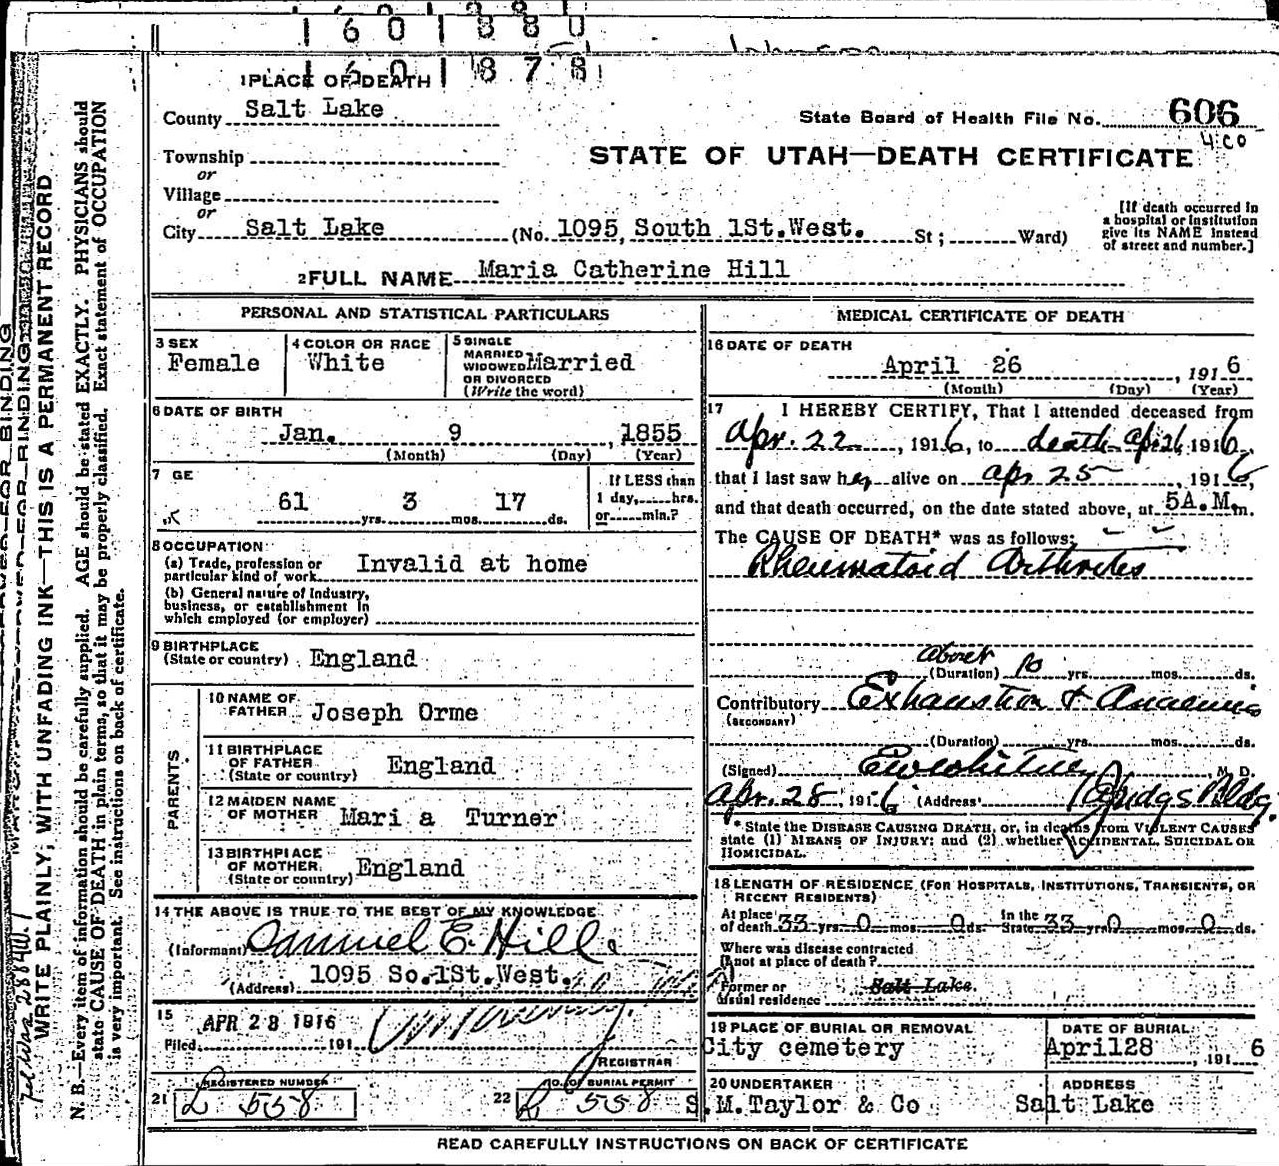 1601880
1601878
1 PLACE OF DEATH
County Salt Lake
State Board of Health File No. 606
4 CO
Township
or
Village
or
STATE OF UTAH—DEATH CERTIFICATE
City Salt Lake (No. 1095, South 1St.West. St; Ward)
[If death occurred in
a hospital or institution
give its NAME instead
of street and number.]
2 FULL NAME Maria Catherine Hill
PERSONAL AND STATISTICAL PARTICULARS
3 SEX
Female
4 COLOR OR RACE
White
5 SINGLE
MARRIED
WIDOWED
OR DIVORCED
(Write the word)
Married
6 DATE OF BIRTH
Jan. 9, 1855
(Month) (Day) (Year)
7 GE
61 yrs. 3 mos. 17 ds.
If LESS than
1 day, hrs.
or min.?
8 OCCUPATION
(a) Trade, profession or
particular kind of work Invalid at home
(b) General nature of Industry,
business, or establishment in
which employed (or employer)
9 BIRTHPLACE
(State or country) England
PARENTS
10 NAME OF
FATHER Joseph Orme
11 BIRTHPLACE
OF FATHER
(State or country) England
12 MAIDEN NAME
OF MOTHER Mari a Turner
13 BIRTHPLACE
OF MOTHER
(State or country) England
14 THE ABOVE IS TRUE TO THE BEST OF MY KNOWLEDGE
(Informant) Samuel E. Hill
(Address) 1095 So.1St.West.
15
Filed APR 28 1916 191
REGISTRAR
21 REGISTERED NUMBER
L 558
22 NO. OF BURIAL PERMIT
L 558
MEDICAL CERTIFICATE OF DEATH
16 DATE OF DEATH
April 26, 1916
(Month) (Day) (Year)
17 I HEREBY CERTIFY, That I attended deceased from
Apr. 22, 1916, to death Ap 26, 1916,
that I last saw her alive on Apr 25, 1916,
and that death occurred, on the date stated above, at 5A.M.m.
The CAUSE OF DEATH* was as follows:
Rheumatoid Arthrites
about 10
(Duration) yrs. mos. ds.
Contributory Exhaustion & Anaemia
(SECONDARY)
(Duration) yrs. mos. ds.
(Signed) M. D.
Apr. 28 1916 (Address Judge Bldg.
*State the DISEASE CAUSING DEATH, or, in deaths from VIOLENT CAUSES
state (1) MEANS OF INJURY; and (2) whether ACCIDENTAL, SUICIDAL OR
HOMICIDAL.
18 LENGTH OF RESIDENCE (FOR HOSPITALS, INSTITUTIONS, TRANSIENTS, OR
RECENT RESIDENTS)
At place of death 33 yrs 0 mos. 0 ds. In the State 33 yrs 0 mos. 0 ds.
Where was disease contracted
if not at place of death?
Former or
usual residence Salt Lake.
19 PLACE OF BURIAL OR REMOVAL
City cemetery
DATE OF BURIAL
April28, 1916
20 UNDERTAKER
S.M.Taylor & Co
ADDRESS
Salt Lake
READ CAREFULLY INSTRUCTIONS ON BACK OF CERTIFICATE
WRITE PLAINLY; WITH UNFADING INK—THIS IS A PERMANENT RECORD
N. B.—Every item of information should be carefully supplied. AGE should be stated EXACTLY. PHYSICIANS should
state CAUSE OF DEATH in plain terms, so that it may be properly classified. Exact statement of OCCUPATION
is very important. See instructions on back of certificate.